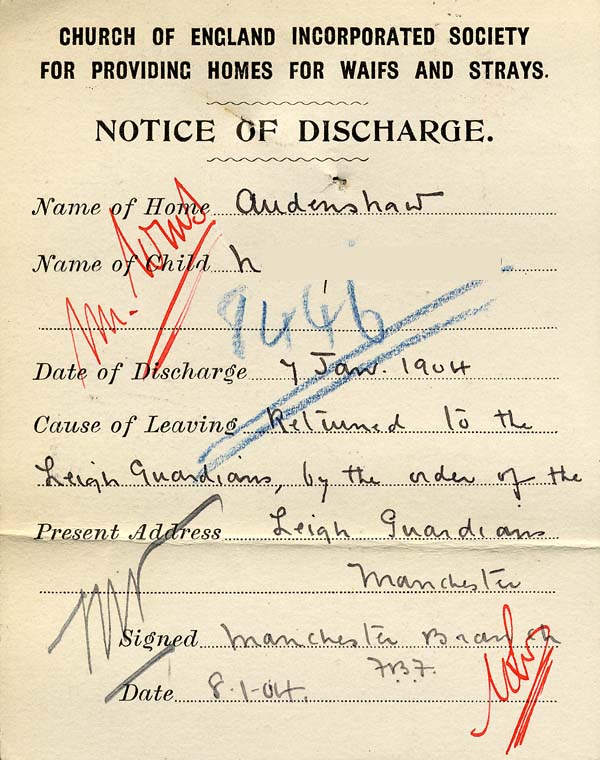 CHURCH OF ENGLAND INCORPORATED SOCIETY
FOR PROVIDING HOMES FOR WAIFS AND STRAYS.
NOTICE OF DISCHARGE.
Name of Home Audenshaw
Name of Child h
8446
Date of Discharge 7 Jan. 1904
Cause of Leaving Returned to the
Leigh Guardians, by the order of the
Present Address Leigh Guardians
Manchester
Signed Manchester Branch
F.B.F.
Date 8.1.04.